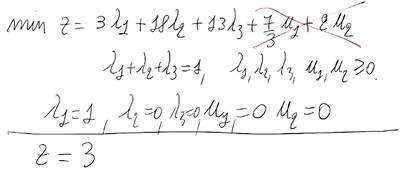 min z = 3λ1+18λ2+13λ3+7/3 μ1+2μ2
λ1+λ2+λ3=1, λ1,λ2,λ3, μ1,μ2≥0.
λ1=1, λ2=0, λ3=0, μ1=0 μ2=0
z = 3